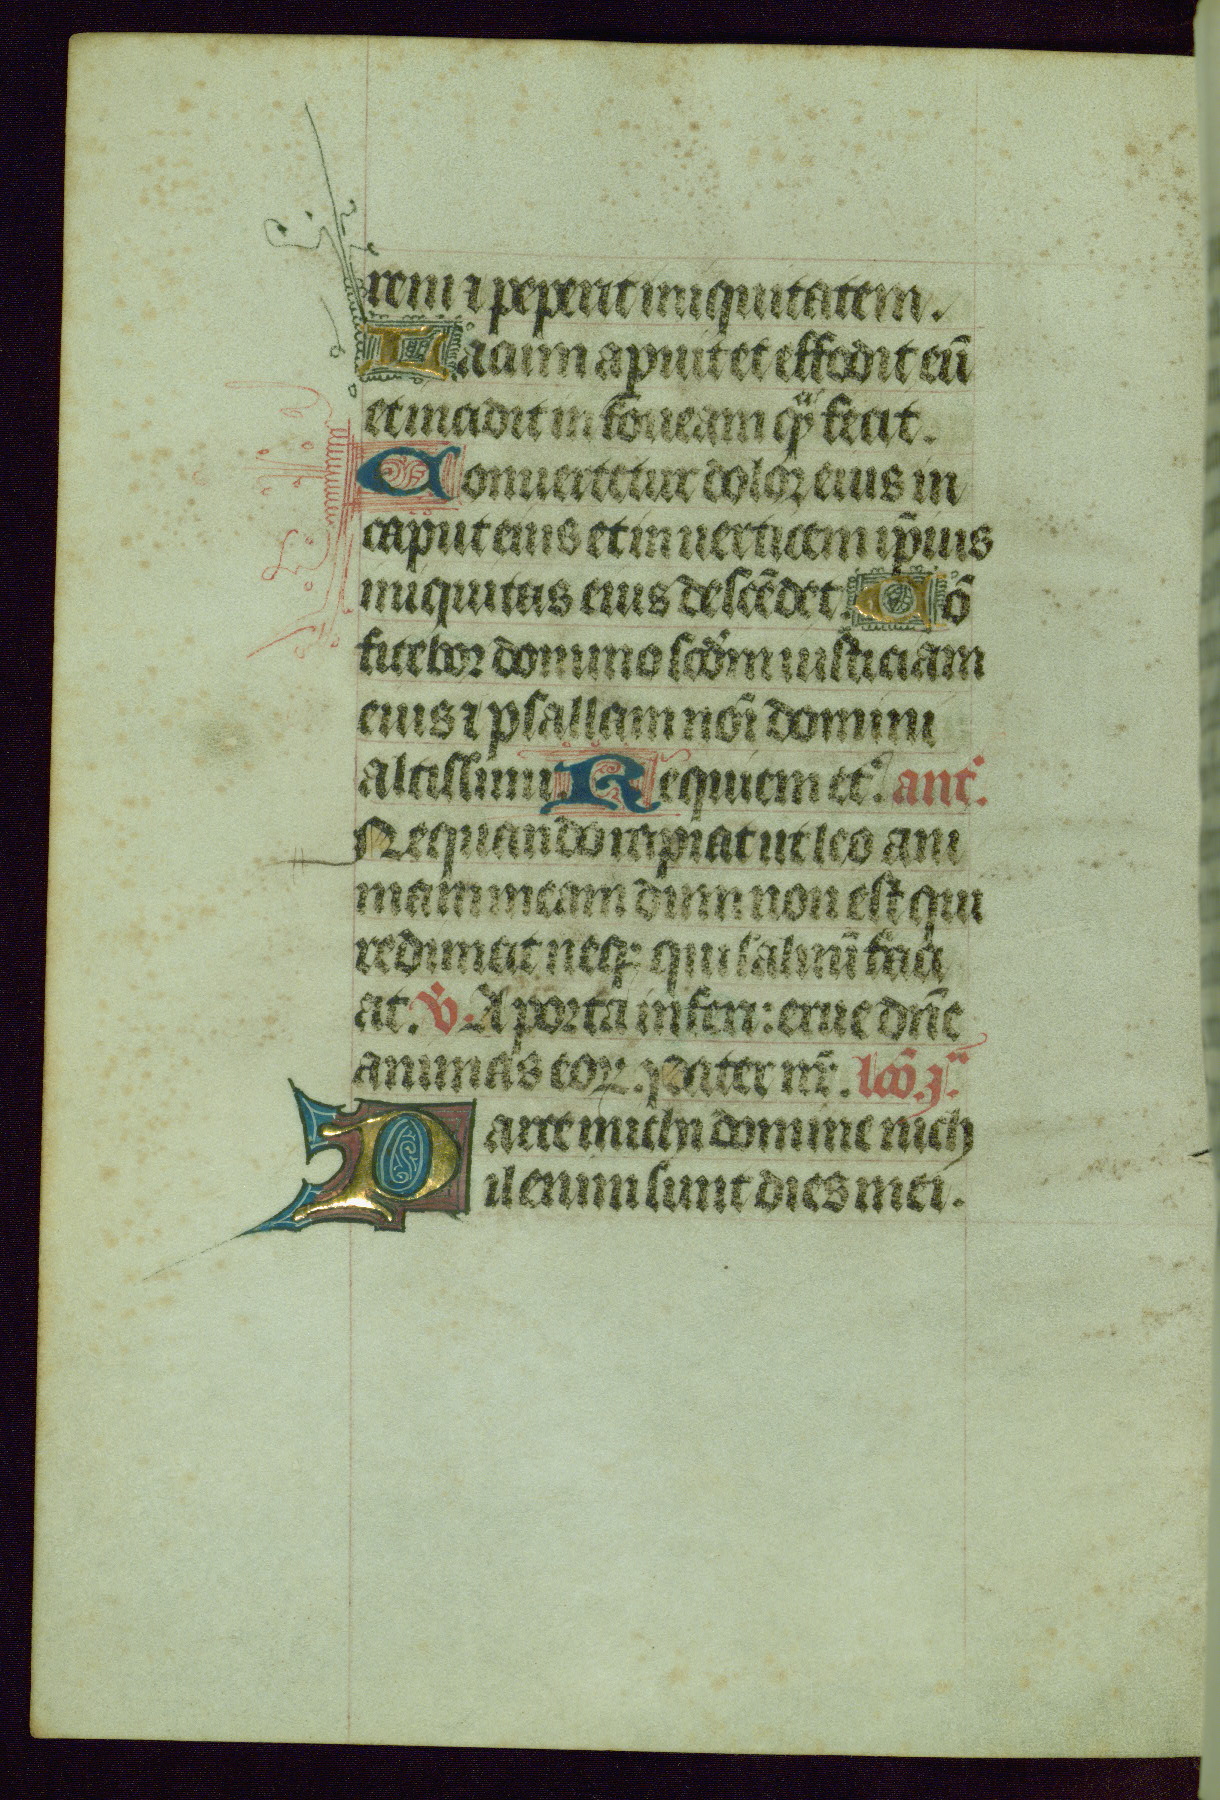 rem ⁊ peperit iniquitatem.
Lacum aperuit et effodit eū
et incidit in foueam qͣ fecit.
Conuertetur dolor eius in
caput eius et in uerticem ip̄ius
iniquitas eius descēdet. Cō
fitebor domino scdm̄ iusticiam
eius ⁊ psallam noī domini
altissimi. Requiem etc̾. ant̾.
Nequando rapiat ut leo ani
mam meam dum non est qui
redimat neqꝫ qui saluū faci
at. V̾. A porta inferi: erue dn̄e
animas eoꝝ. pater nr̄. lc̄o. jᵃ.
Parce michi domine nich
il enim sunt dies mei.